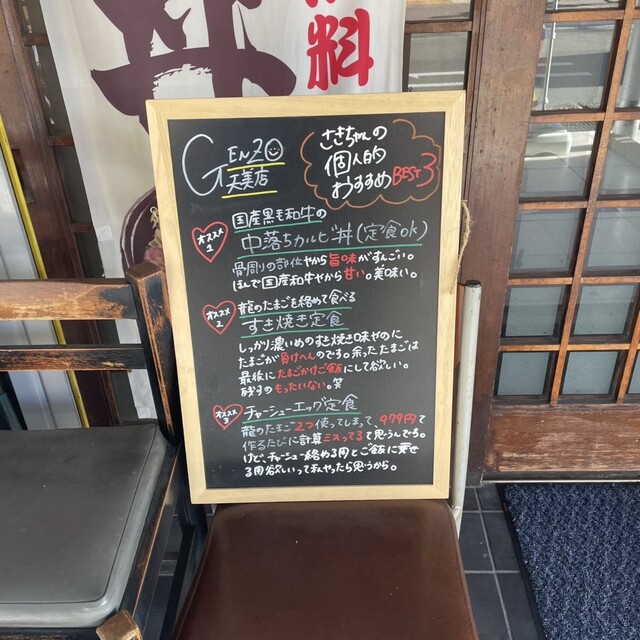 料
GENZO
天美店
ささちゃんの
個人的
おすすめBEST3
オススメ
1
国産黒毛和牛の
中落ちカルビ丼(定食ok)
骨周りの部位やから旨味がすんごい。
ほんで国産和牛やから甘い。美味い。
オススメ
2
龍のたまごも絡めて食べる
すき焼き定食
しっかり濃いめのすき焼き味やのに
たまごが負けへんのです。余ったたまごは
最後にたまごかけご飯にして欲しい。
残すのもったいない。笑
オススメ
3
チャーシューエッグ定食
龍のたまご2つ使ってしまって、979円て
作るたびに計算ミスってるて思うんです。
けど、チャーシュー絡める用とご飯に乗せ
る用欲しいって私やったら思うから。